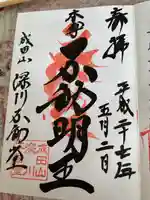 奉拝
平成二十七年
五月二日
本尊
不動明王
成田山
深川不動堂